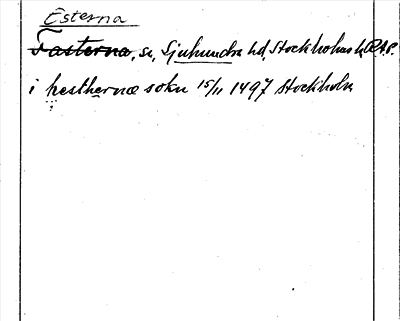 Esterna
Fasterna, sn, Sjuhundra hd, Stockholms l. RAP.
i hesthernæ sokn 15/11 1497 Stockholm